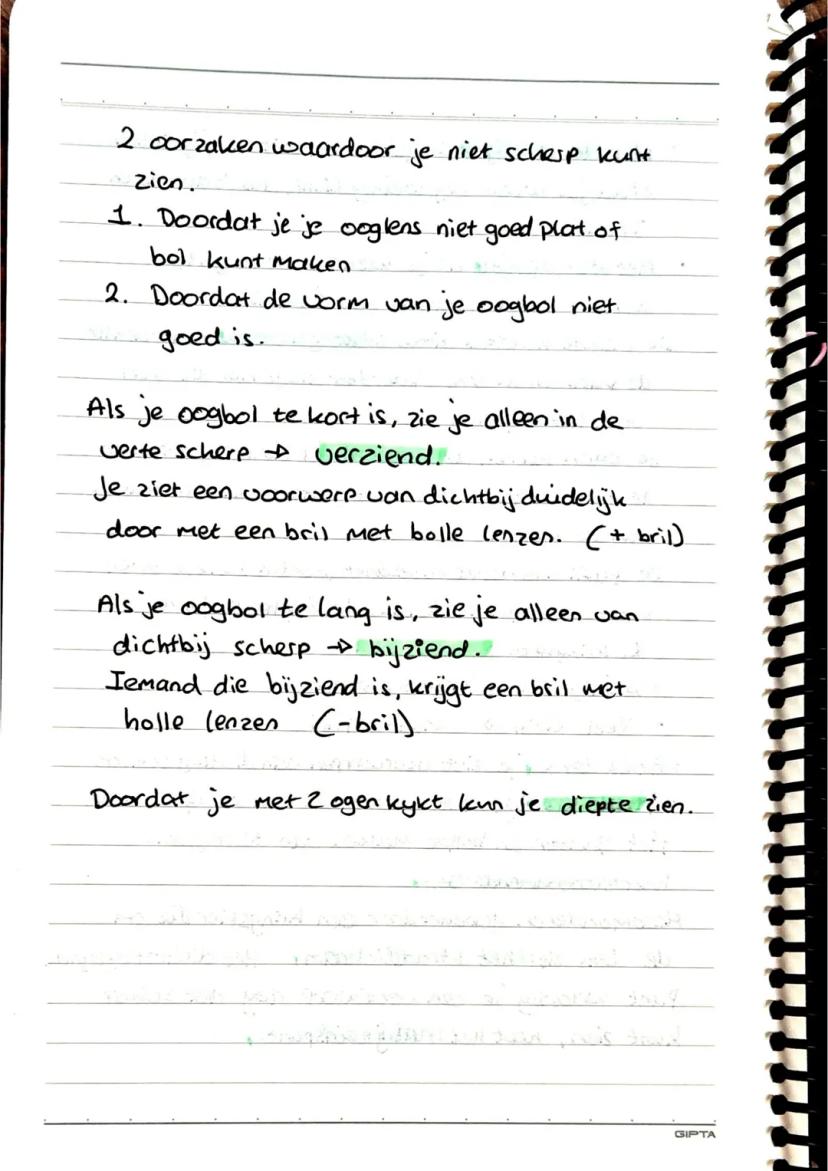 2 oorzaken waardoor je niet scherp kunt
zien.
1. Doordat je je ooglens niet goed plat of
bol kunt maken
2. Doordat de vorm van je oogbol niet
goed is.
Als je oogbol te kort is, zie je alleen in de
verte scherp → verziend.
Je ziet een voorwerp van dichtbij duidelijk
door met een bril met bolle lenzen. (+ bril)
Als je oogbol te lang is, zie je alleen van
dichtbij scherp → bijziend.
Iemand die bijziend is, krijgt een bril met
holle lenzen (-bril)
Doordat je met 2 ogen kykt kun je diepte zien.
GIPTA